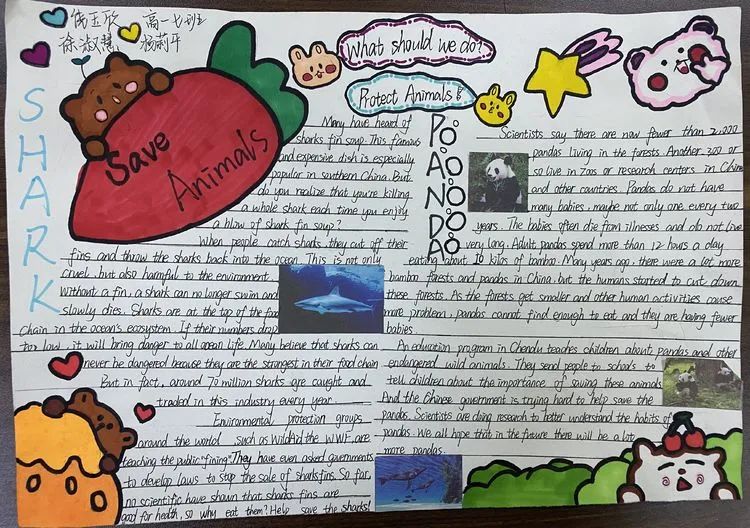 高一七班
杨莉平
What should we do?
Protect Animals!
SHARK
Save
Animals
Many have heard of
sharks fin soup. This famous
and expensive dish is especially
popular in southern China. But
do you realize that you're killing
a whole shark each time you enjoy
a blow of shark fin soup?
When people catch sharks, they cut off their
fins and throw the sharks back into the ocean. This is not only
cruel, but also harmful to the environment.
Without a fin, a shark can no longer swim and
slowly dies. Sharks are at the top of the food
chain in the ocean's ecosystem. If their numbers drop
too low, it will bring danger to all ocean life. Many believe that sharks can
never be dangered because they are the strongest in their food chain
But in fact, around 70 million sharks are caught and
traded in this industry every year
Environmental protection groups
around the world, such as WildAid the WWF, are
teaching the public "fining". They have even asked governments
to develop laws to stop the sale of sharks fins. So far,
no scientific have shown that sharks fins are
good for health, so why eat them? Help save the sharks!
PANDA
Scientists say there are now fewer than 2,000
pandas living in the forests. Another 300 or
so live in zoos or research centers in China
and other countries. Pandas do not have
many babies, maybe not only one every two
years. The babies often die from illnesses and do not live
very long. Adult pandas spend more than 12 hours a day
eating about 10 kilos of bamboo. Many years ago, there were a lot more
bamboo forests and pandas in China, but the humans started to cut down
these forests. As the forests get smaller and other human activities cause
more problem, pandas cannot find enough to eat and they are having fewer
babies.
An education program in Chendu teaches children about pandas and other
endangered wild animals. They send people to schools to
tell children about the importance of saving these animals
And the Chinese government is trying hard to help save the
pandas. Scientists are doing research to better understand the habits of
pandas. We all hope that in the future there will be a lot
more pandas.